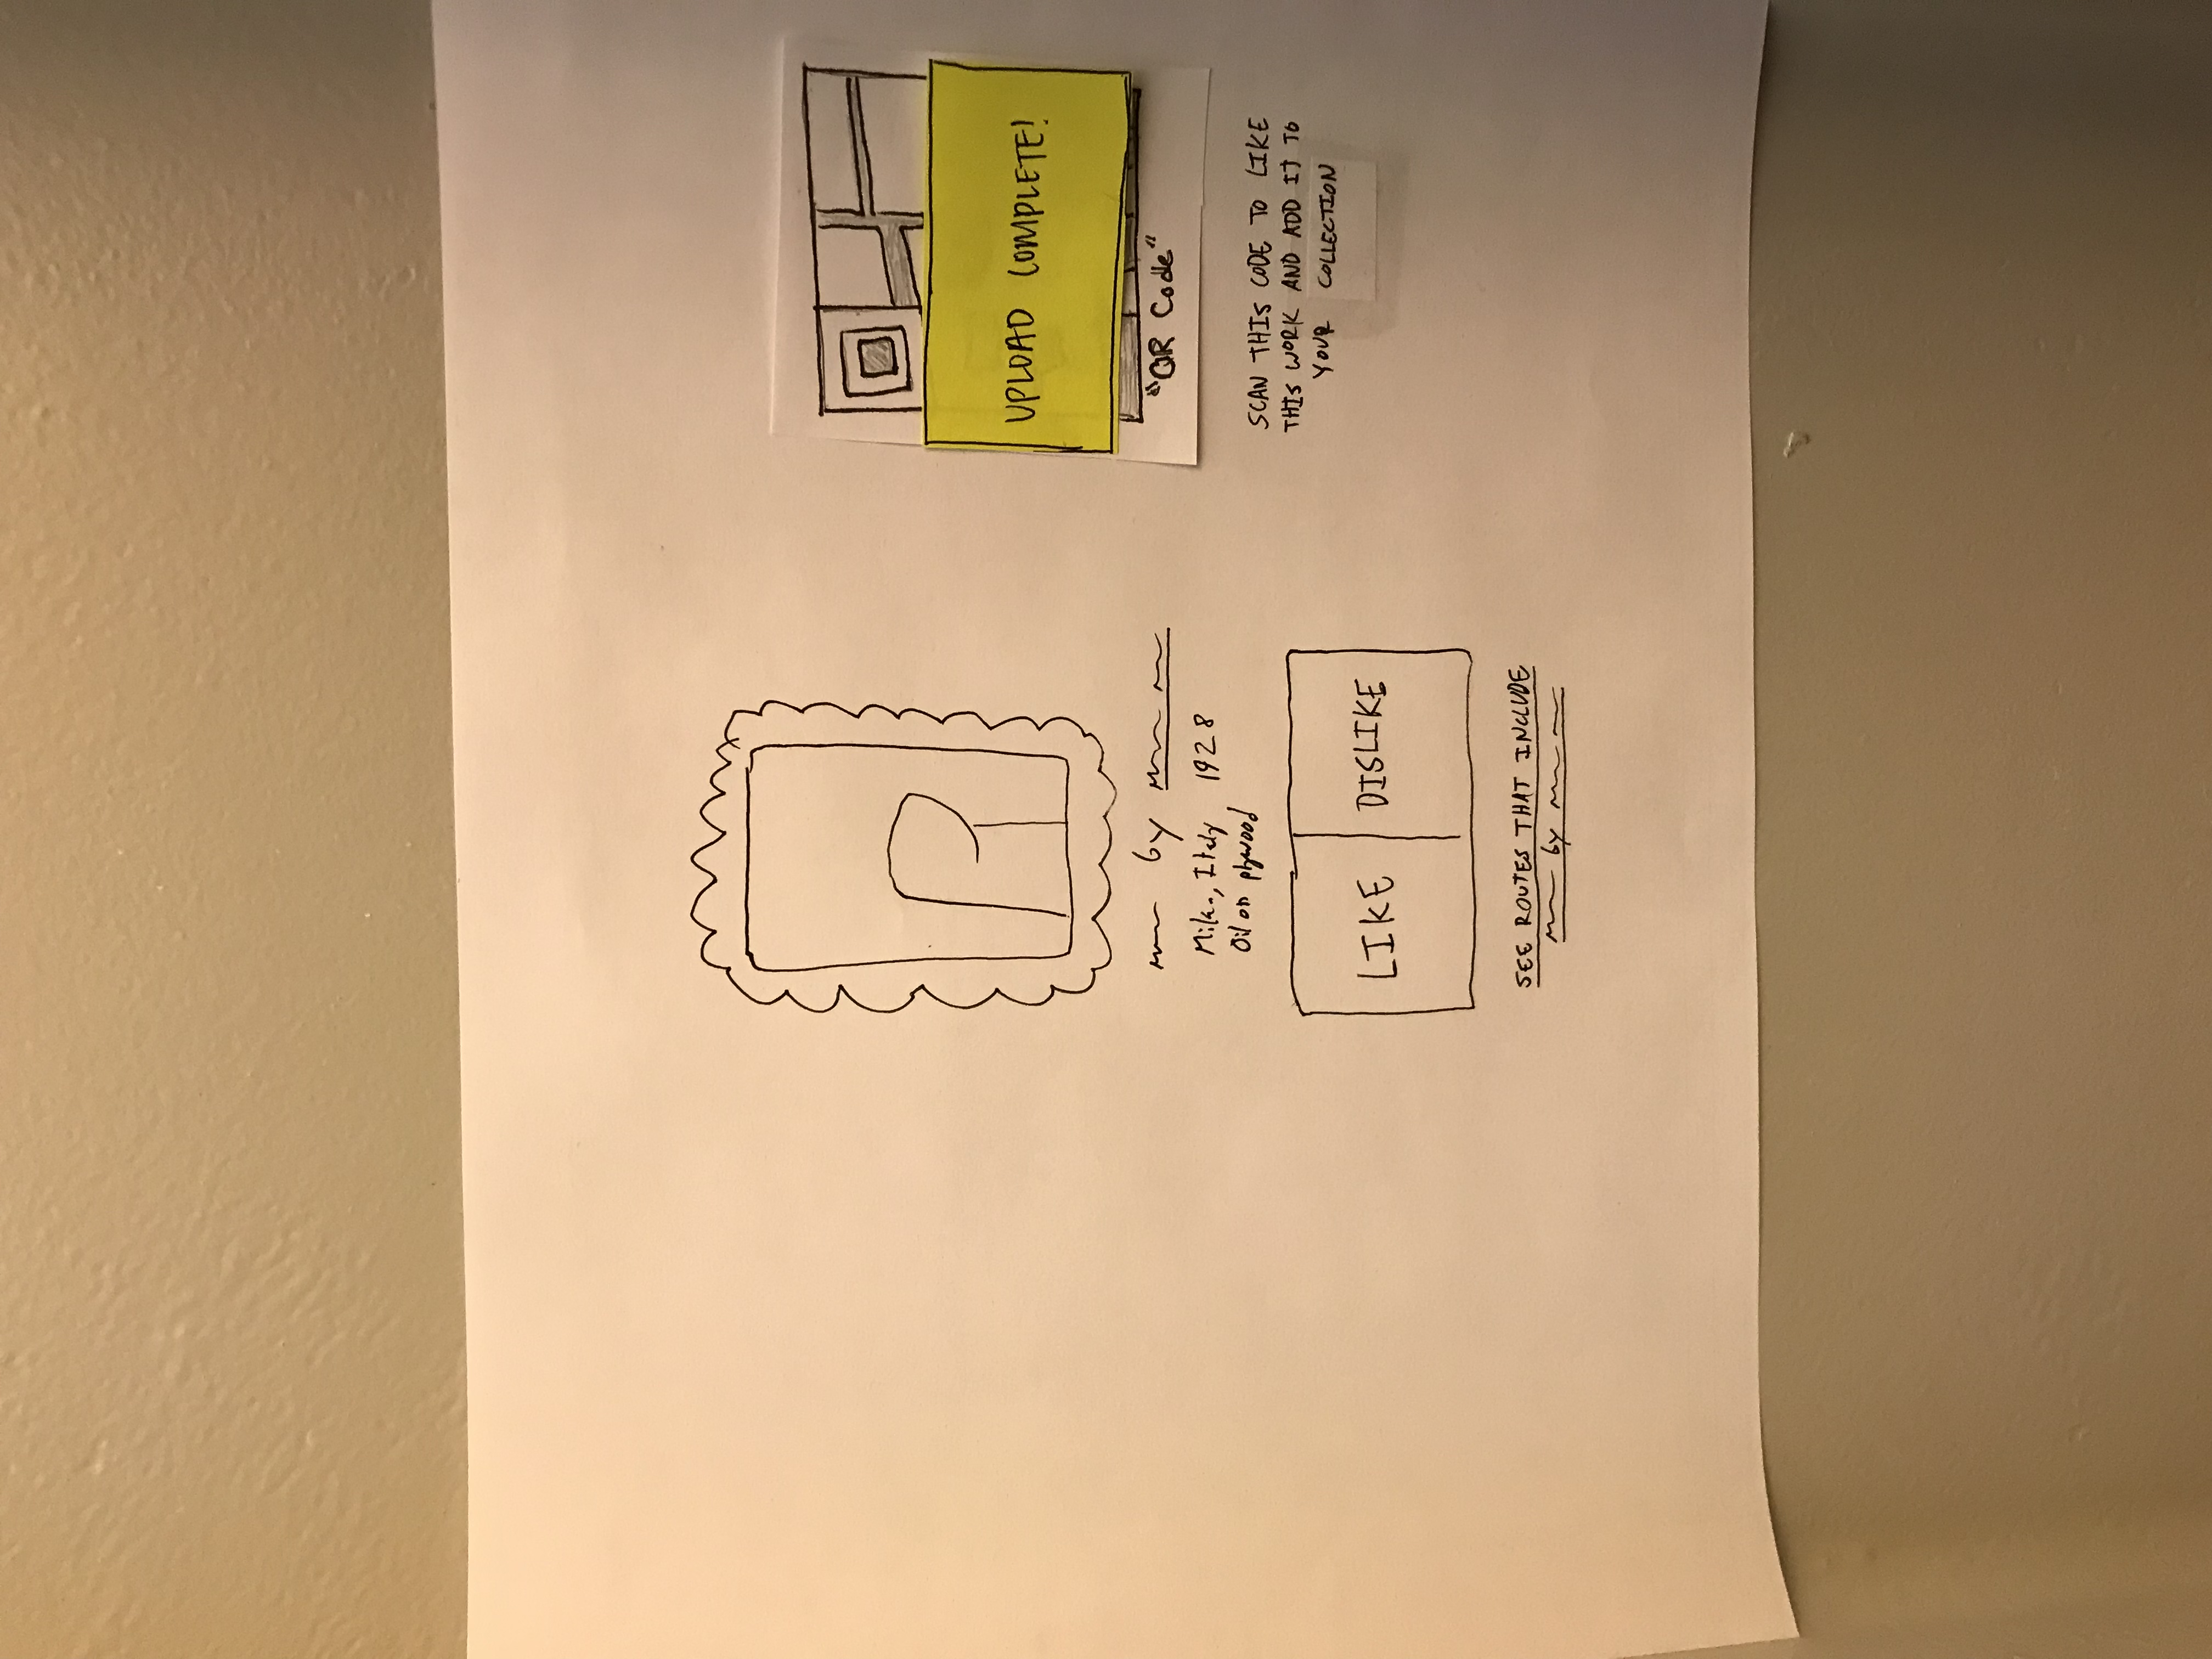 by
Milan, Italy 1928
Oil on plywood
LIKE
DISLIKE
SEE ROUTES THAT INCLUDE
by
UPLOAD COMPLETE!
"QR Code"
SCAN THIS CODE TO LIKE
THIS WORK AND ADD IT TO
YOUR COLLECTION